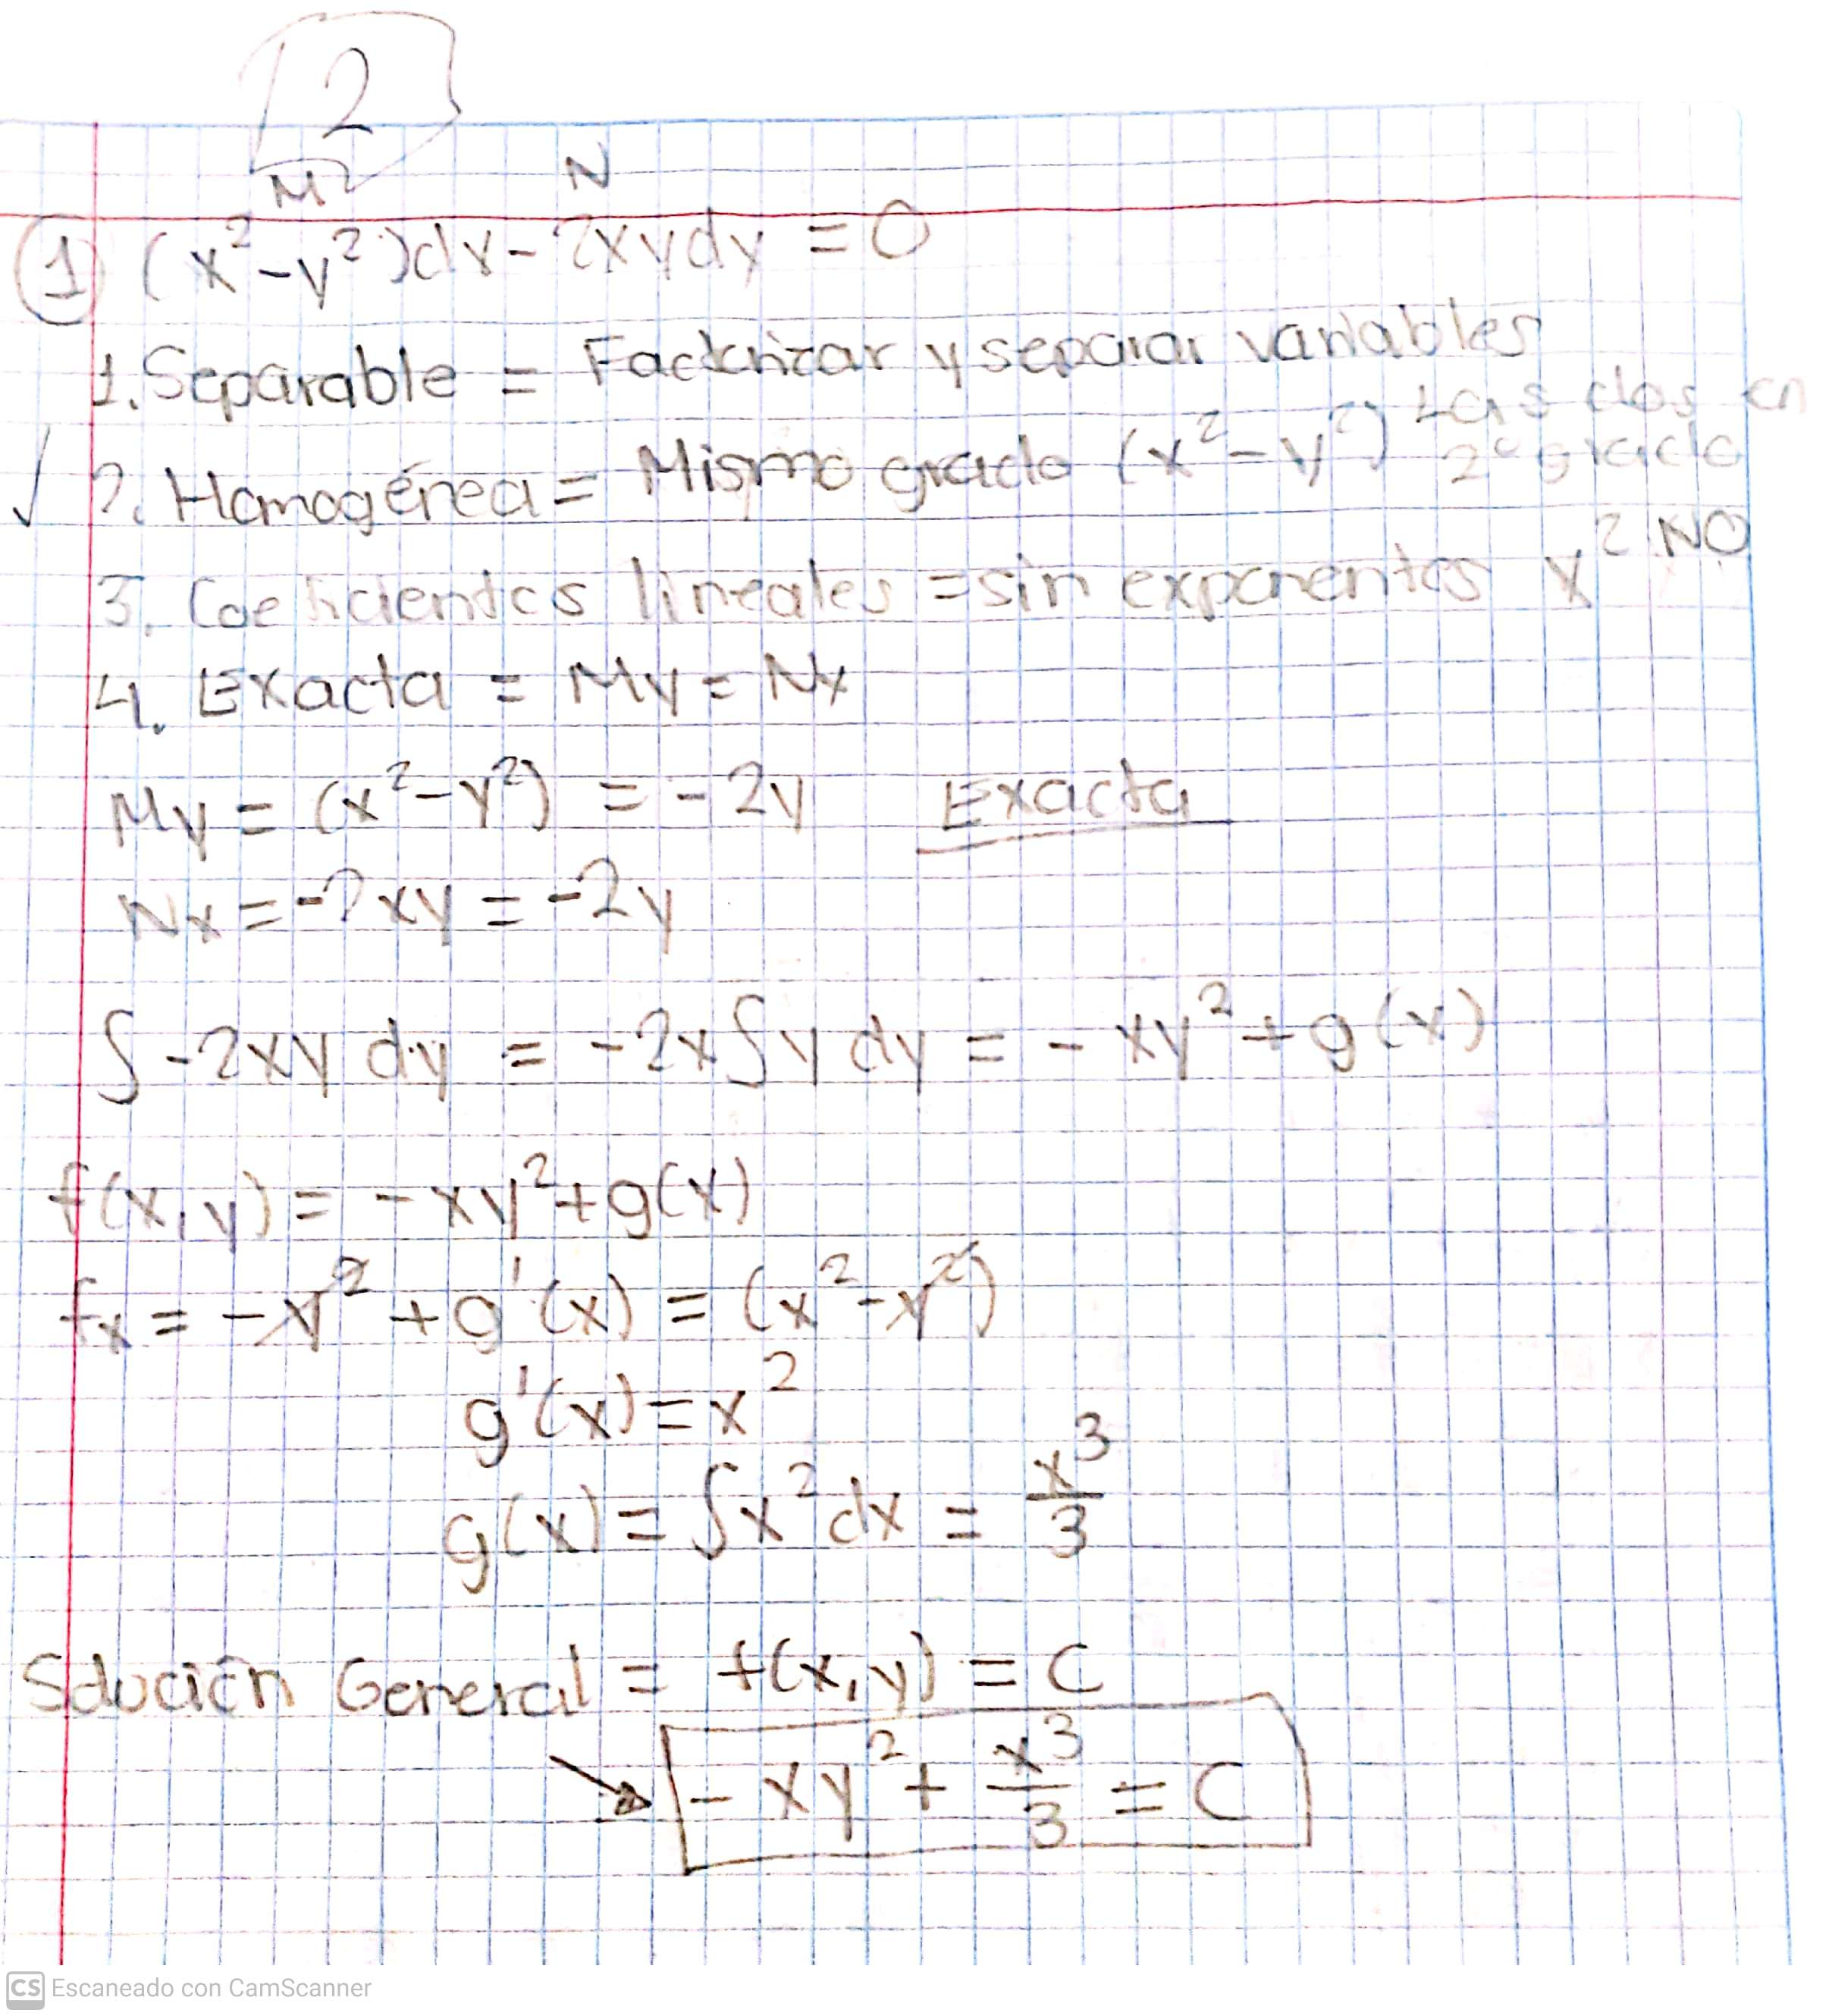 2
M N
① (x²-y²)dx-2xydy=0
1. Separable = Factorizar y separar variables
✓ 2. Homogénea = Mismo grado (x²-y²) Las dos en 2° grado
3. Coeficientes lineales = sin exponentes x² NO
4. Exacta = My = Nx
My = (x²-y²) = -2y Exacta
Nx = -2xy = -2y
∫-2xy dy = -2x∫y dy = -xy²+g(x)
f(x,y) = -xy²+g(x)
fx = -y²+g'(x) = (x²-y²)
g'(x)=x²
g(x)=∫x²dx = x³/3
Solución General = f(x,y) = C
-xy²+x³/3 = C
CS Escaneado con CamScanner